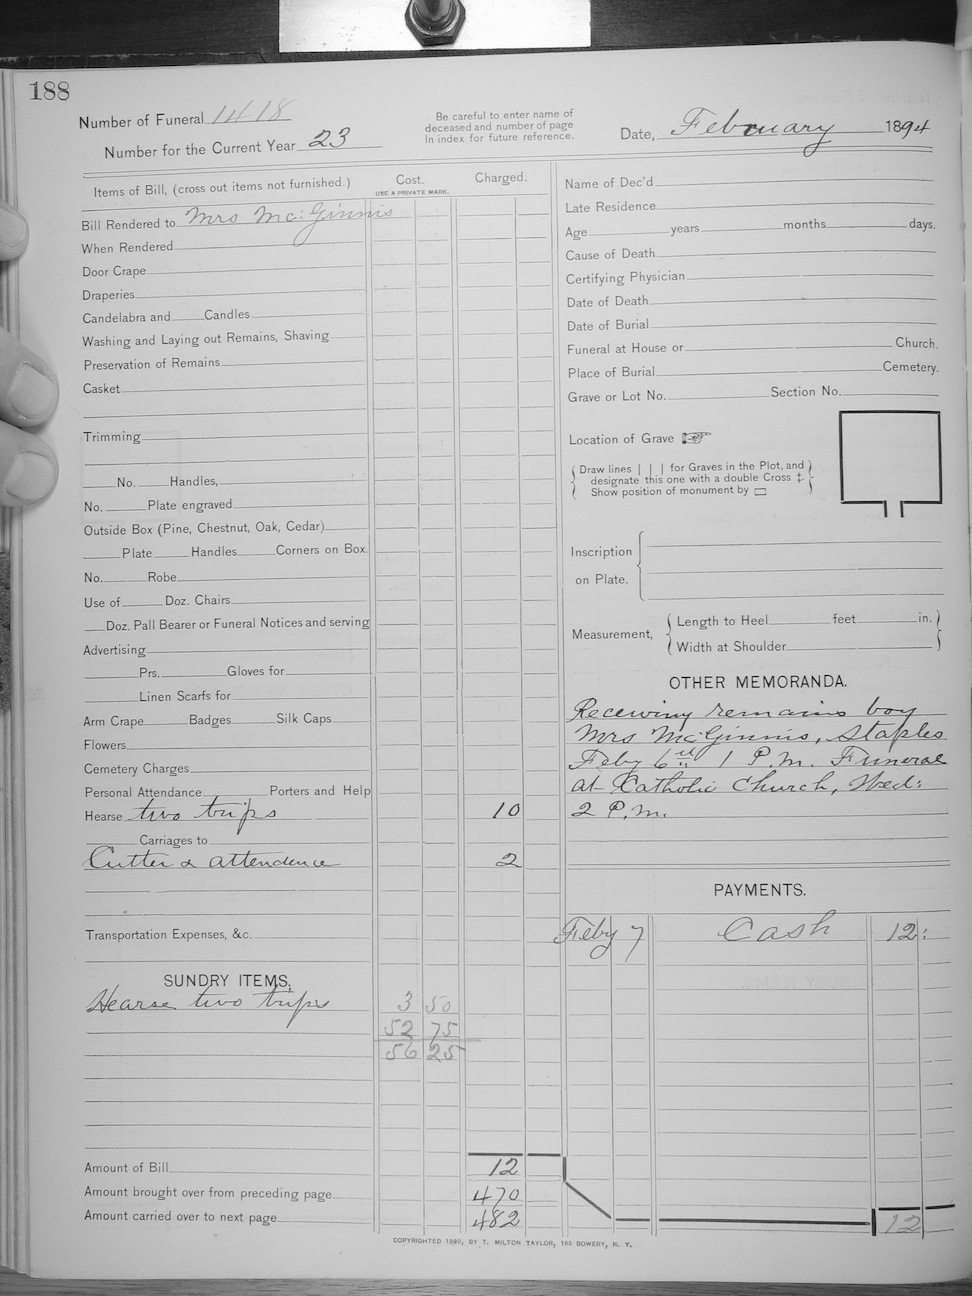 188
Number of Funeral 1418
Number for the Current Year 23
Be careful to enter name of
deceased and number of page
in index for future reference.
Date, February 1894
Items of Bill, (cross out items not furnished.) Cost. Charged.
USE A PRIVATE MARK.
Bill Rendered to Mrs Mc:Ginnis
When Rendered
Door Crape
Draperies
Candelabra and Candles
Washing and Laying out Remains, Shaving
Preservation of Remains
Casket
Trimming
No. Handles,
No. Plate engraved
Outside Box (Pine, Chestnut, Oak, Cedar)
Plate Handles Corners on Box.
No. Robe
Use of Doz. Chairs
Doz. Pall Bearer or Funeral Notices and serving
Advertising
Prs. Gloves for
Linen Scarfs for
Arm Crape Badges Silk Caps
Flowers
Cemetery Charges
Personal Attendance Porters and Help
Hearse two trips 10
Carriages to
Cutter & attendence 2
Transportation Expenses, &c.
SUNDRY ITEMS.
Hearse two trips 3 50
52 75
56 25
Amount of Bill 12
Amount brought over from preceding page 470
Amount carried over to next page 482
Name of Dec'd
Late Residence
Age years months days.
Cause of Death
Certifying Physician
Date of Death
Date of Burial
Funeral at House or Church.
Place of Burial Cemetery.
Grave or Lot No. Section No.
Location of Grave
Draw lines | | | for Graves in the Plot, and
designate this one with a double Cross ‡.
Show position of monument by
Inscription
on Plate.
Measurement,
Length to Heel feet in.
Width at Shoulder
OTHER MEMORANDA.
Receiving remains boy
Mrs McGinnis, Staples
Feby 6th 1 P.m. Funeral
at Catholic Church, Wed:
2 P.m.
PAYMENTS.
Feby 7 Cash 12:
12
COPYRIGHTED 1890, BY T. MILTON TAYLOR, 163 BOWERY, N. Y.